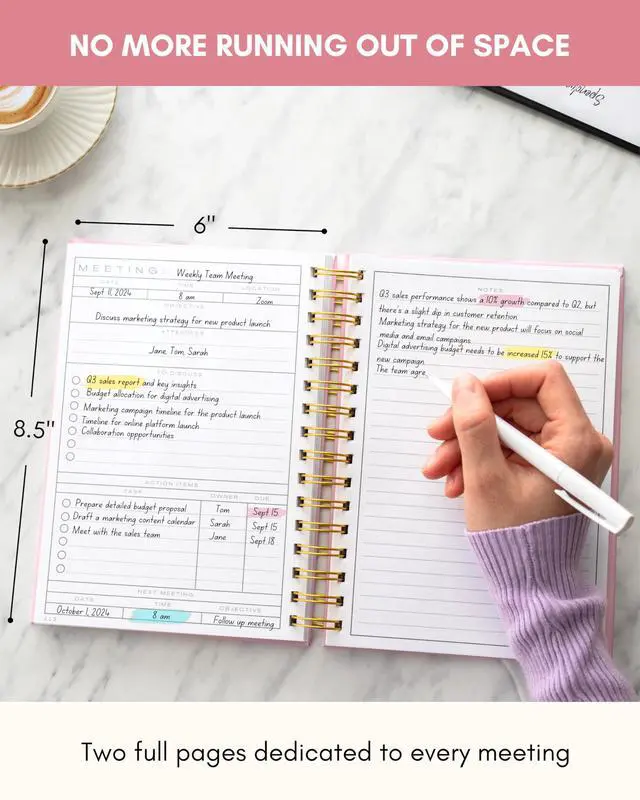 NO MORE RUNNING OUT OF SPACE
Spendin
6"
8.5"
MEETING: Weekly Team Meeting
DATE TIME LOCATION
Sept 11, 2024 8 am Zoom
OBJECTIVE
Discuss marketing strategy for new product launch
ATTENDEES
Jane, Tom, Sarah
TO DISCUSS
Q3 sales report and key insights
Budget allocation for digital advertising
Marketing campaign timeline for the product launch
Timeline for online platform launch
Collaboration oppportunities
ACTION ITEMS
TASK OWNER DUE
Prepare detailed budget proposal Tom Sept 15
Draft a marketing content calendar Sarah Sept 15
Meet with the sales team Jane Sept 18
NEXT MEETING
DATE TIME OBJECTIVE
October 1, 2024 8 am Follow up meeting
NOTES
Q3 sales performance shows a 10% growth compared to Q2, but
there's a slight dip in customer retention
Marketing strategy for the new product will focus on social
media and email campaigns
Digital advertising budget needs to be increased 15% to support the
new campaign
The team agre
Two full pages dedicated to every meeting